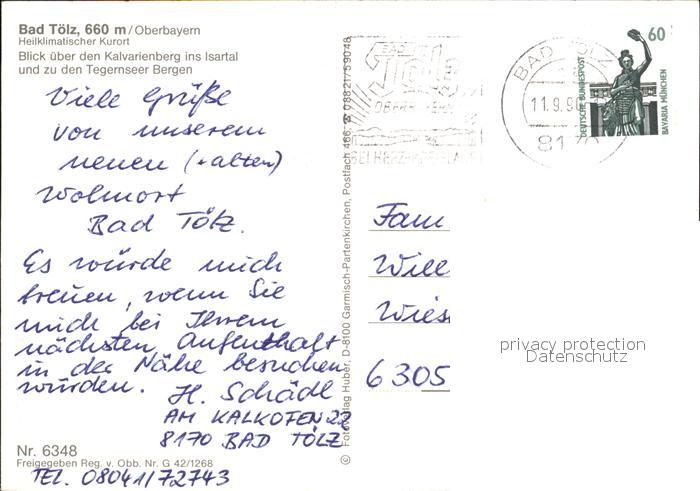 Bad Tölz, 660 m / Oberbayern
Heilklimatischer Kurort
Blick über den Kalvarienberg ins Isartal
und zu den Tegernseer Bergen
Viele Grüße
von unserem
neuen (+ alten)
Wohnort
Bad Tölz.
Es würde mich
freuen, wenn Sie
mich bei Ihrem
nächsten Aufenthalt
in der Nähe besuchen
würden.
H. Schädl
AM KALKOFEN 22
8170 BAD TÖLZ
TEL. 08041/72743
Nr. 6348
Freigegeben Reg. v. Obb. Nr. G 42/1268
© Fotoverlag Huber, D-8100 Garmisch-Partenkirchen, Postfach 466, ☎ 08821/59048
BAD
Tölz
BAD TÖLZ
11.9.9
8170
60
DEUTSCHE BUNDESPOST
BAVARIA MÜNCHEN
Fam
Will
Wies
6305
privacy protection
Datenschutz